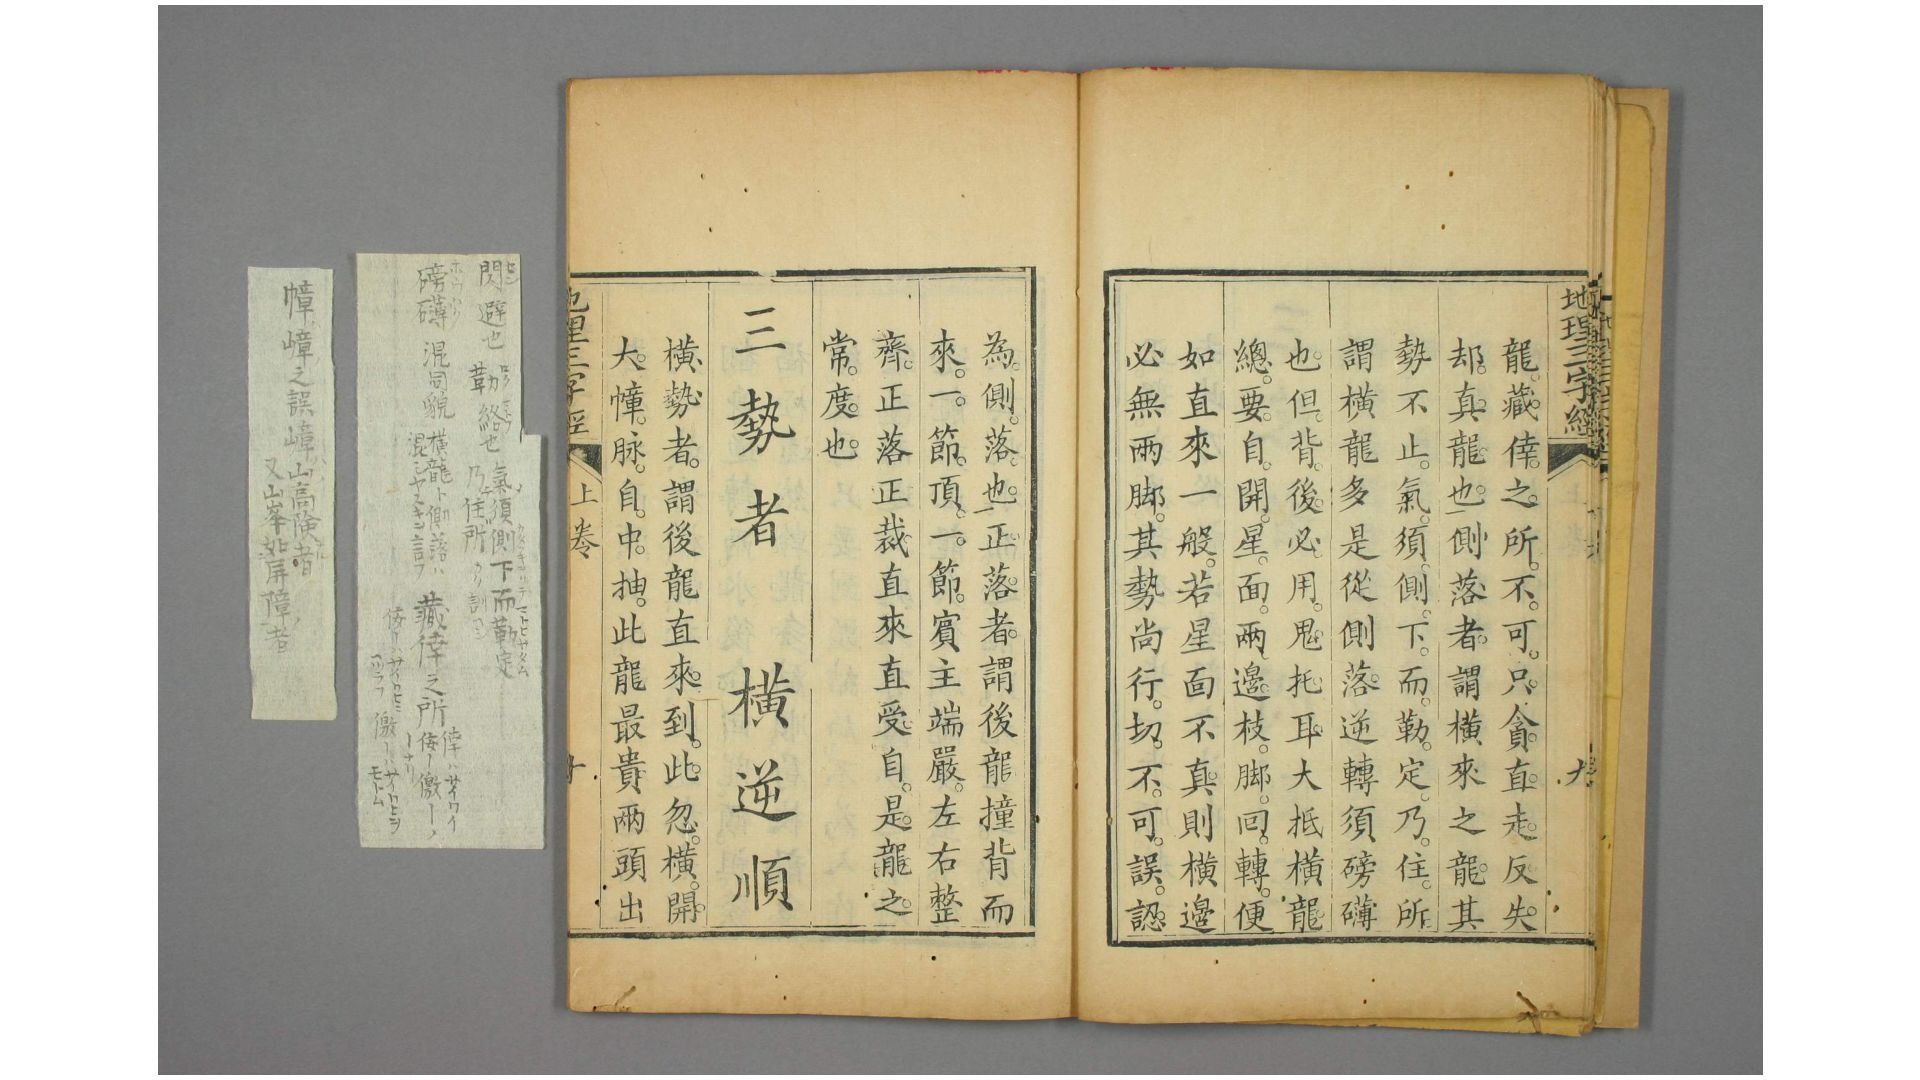 地理三字經
九
龍。藏倖。之。所。不。可。只。貪。直。走。反失。
却。真。龍。也。側落者。謂橫來之龍。其
勢不止。氣。須。側。下。而。勒。定。乃。住。所
謂橫龍多是從側落。逆轉須磅礴
也。但。背。後。必。用。鬼。托耳大抵橫龍
總。要。自。開。星。面。兩。邊。枝。脚。回。轉。便
如直來一般。若星面不真則橫邊
必無兩脚。其勢尚行。切。不。可。誤。認。
為。側。落。也。正落者。謂後龍撞背而
來。一。節。頂。一。節。賓主端嚴。左右整
齊。正落正裁直來直受。自。是。龍。之。
常。度。也
三勢者橫逆順
橫勢者。謂後龍直來。到。此。忽。橫。開。
大。幛。脉。自。中。抽。此龍最貴兩頭出
地理三字經
上卷
十
閃避也 勒絡也 氣須側下而勒定
乃住所
磅礴 混同貌 橫龍ト側落ハ
混シヤスキヲ言フ
藏倖之所 倖ハサイワイ
幛嶂之誤 嶂山高険者
又山峯如屏障者